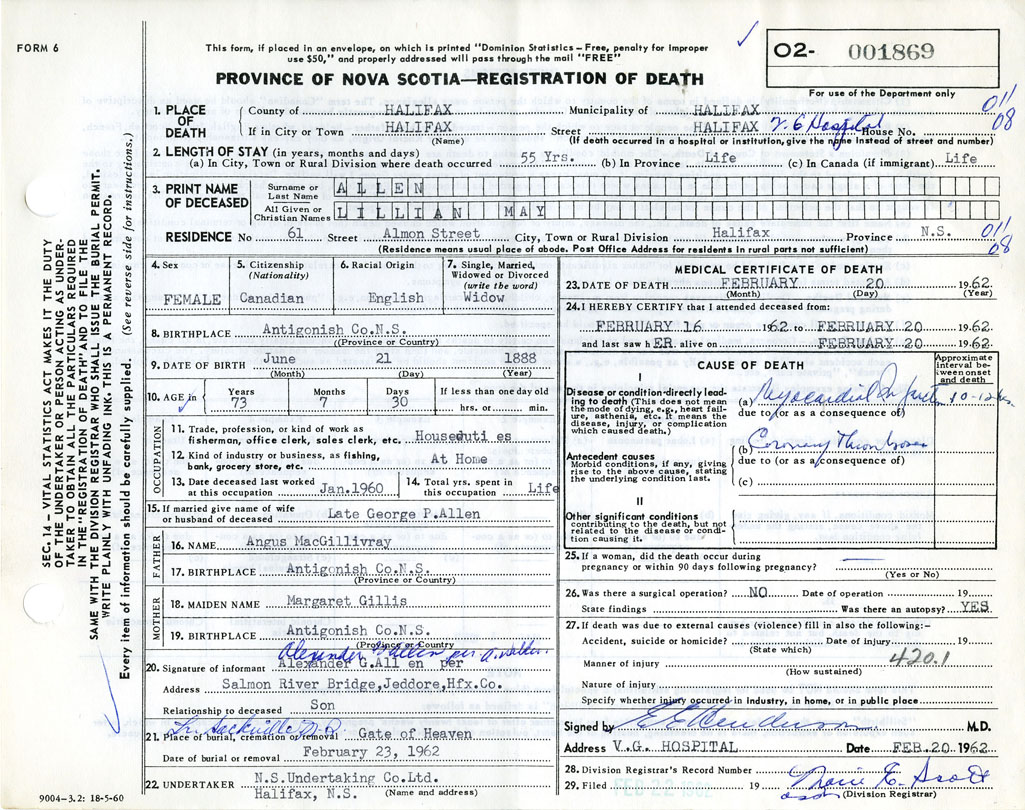 FORM 6
This form, if placed in an envelope, on which is printed "Dominion Statistics – Free, penalty for improper
use $50," and properly addressed will pass through the mail "FREE"
PROVINCE OF NOVA SCOTIA—REGISTRATION OF DEATH
02- 001869
For use of the Department only
011
08
1. PLACE OF DEATH
County of HALIFAX Municipality of HALIFAX
If in City or Town HALIFAX Street HALIFAX V G Hospital House No.
(Name) (If death occurred in a hospital or institution, give the name instead of street and number)
2. LENGTH OF STAY (in years, months and days)
(a) In City, Town or Rural Division where death occurred 55 Yrs. (b) In Province Life (c) In Canada (if immigrant) Life
3. PRINT NAME OF DECEASED
Surname or Last Name ALLEN
All Given or Christian Names LILLIAN MAY
RESIDENCE No 61 Street Almon Street City, Town or Rural Division Halifax Province N.S.
(Residence means usual place of abode. Post Office Address for residents in rural parts not sufficient)
011
08
4. Sex FEMALE
5. Citizenship (Nationality) Canadian
6. Racial Origin English
7. Single, Married, Widowed or Divorced (write the word) Widow
8. BIRTHPLACE Antigonish Co.N.S.
(Province or Country)
9. DATE OF BIRTH June 21 1888
(Month) (Day) (Year)
10. AGE in Years 73 Months 7 Days 30 If less than one day old hrs. or min.
OCCUPATION
11. Trade, profession, or kind of work as fisherman, office clerk, sales clerk, etc. Houseduties
12. Kind of industry or business, as fishing, bank, grocery store, etc. At Home
13. Date deceased last worked at this occupation Jan.1960
14. Total yrs. spent in this occupation Life
15. If married give name of wife or husband of deceased Late George P.Allen
FATHER
16. NAME Angus MacGillivray
17. BIRTHPLACE Antigonish Co.N.S.
(Province or Country)
MOTHER
18. MAIDEN NAME Margaret Gillis
19. BIRTHPLACE Antigonish Co.N.S.
(Province or Country)
Alexander Allen per
20. Signature of informant Alexander G.All en per
Address Salmon River Bridge,Jeddore,Hfx.Co.
Relationship to deceased Son
Lr. Sackville
21. Place of burial, cremation or removal Gate of Heaven
Date of burial or removal February 23, 1962
22. UNDERTAKER N.S.Undertaking Co.Ltd.
Halifax, N.S. (Name and address)
MEDICAL CERTIFICATE OF DEATH
23. DATE OF DEATH FEBRUARY 20 1962.
(Month) (Day) (Year)
24. I HEREBY CERTIFY that I attended deceased from:
FEBRUARY 16 1962 to FEBRUARY 20 1962.
and last saw hER alive on FEBRUARY 20 1962.
CAUSE OF DEATH
Approximate interval between onset and death
I
Disease or condition directly leading to death (This does not mean the mode of dying, e.g., heart failure, asthenia, etc. It means the disease, injury, or complication which caused death.)
(a) Myocardial Infarct 10-12
due to (or as a consequence of)
Antecedent causes
Morbid conditions, if any, giving rise to the above cause, stating the underlying condition last.
(b) Coronary Thrombosis
due to (or as a consequence of)
(c)
II
Other significant conditions
contributing to the death, but not related to the disease or condition causing it.
25. If a woman, did the death occur during pregnancy or within 90 days following pregnancy?
(Yes or No)
26. Was there a surgical operation? NO Date of operation 19
State findings Was there an autopsy? YES
27. If death was due to external causes (violence) fill in also the following:–
Accident, suicide or homicide? Date of injury 19
(State which)
420.1
Manner of injury
(How sustained)
Nature of injury
Specify whether injury occurred in Industry, in home, or in public place
Signed by E E Henderson M.D.
Address V.G. HOSPITAL Date FEB.20 1962
28. Division Registrar's Record Number
29. Filed FEB 22 1962 19 Marie E. Scott
(Division Registrar)
SEC. 14 – VITAL STATISTICS ACT MAKES IT THE DUTY
OF THE UNDERTAKER OR PERSON ACTING AS UNDER-
TAKER TO OBTAIN ALL THE PARTICULARS REQUIRED
IN THE "REGISTRATION OF DEATH" AND TO FILE THE
SAME WITH THE DIVISION REGISTRAR WHO SHALL ISSUE THE BURIAL PERMIT.
WRITE PLAINLY WITH UNFADING INK. THIS IS A PERMANENT RECORD.
Every item of information should be carefully supplied. (See reverse side for instructions.)
9004-3.2: 18-5-60